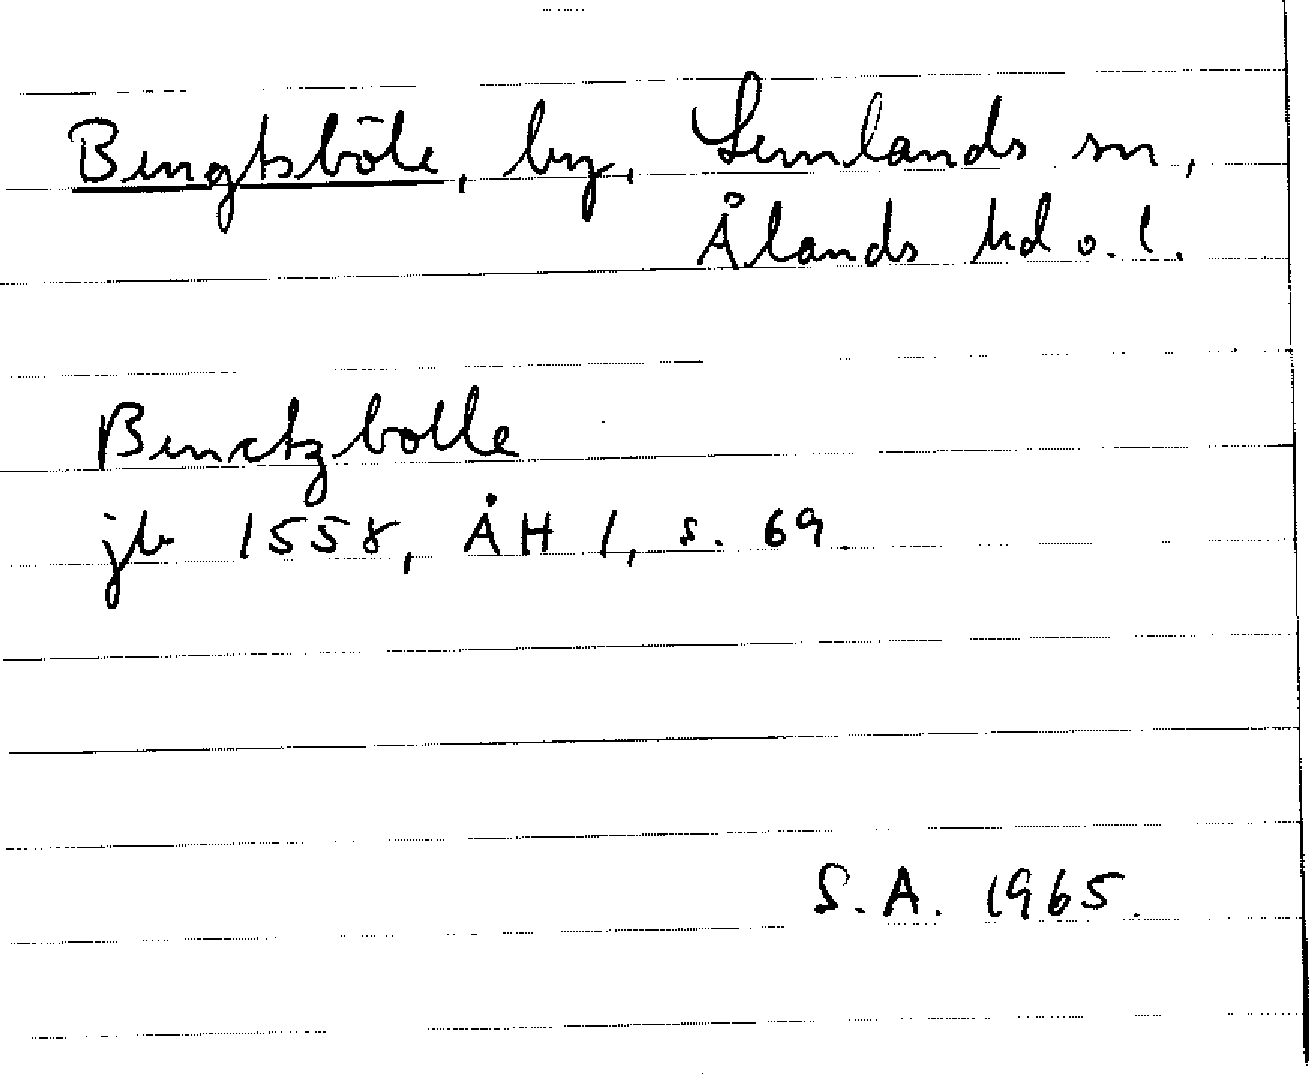 Bengtsböle, by, Lemlands sn,
Ålands hd o. l.
Benctzbolle
jb 1558, ÅH 1, s. 69.
S.A. 1965.